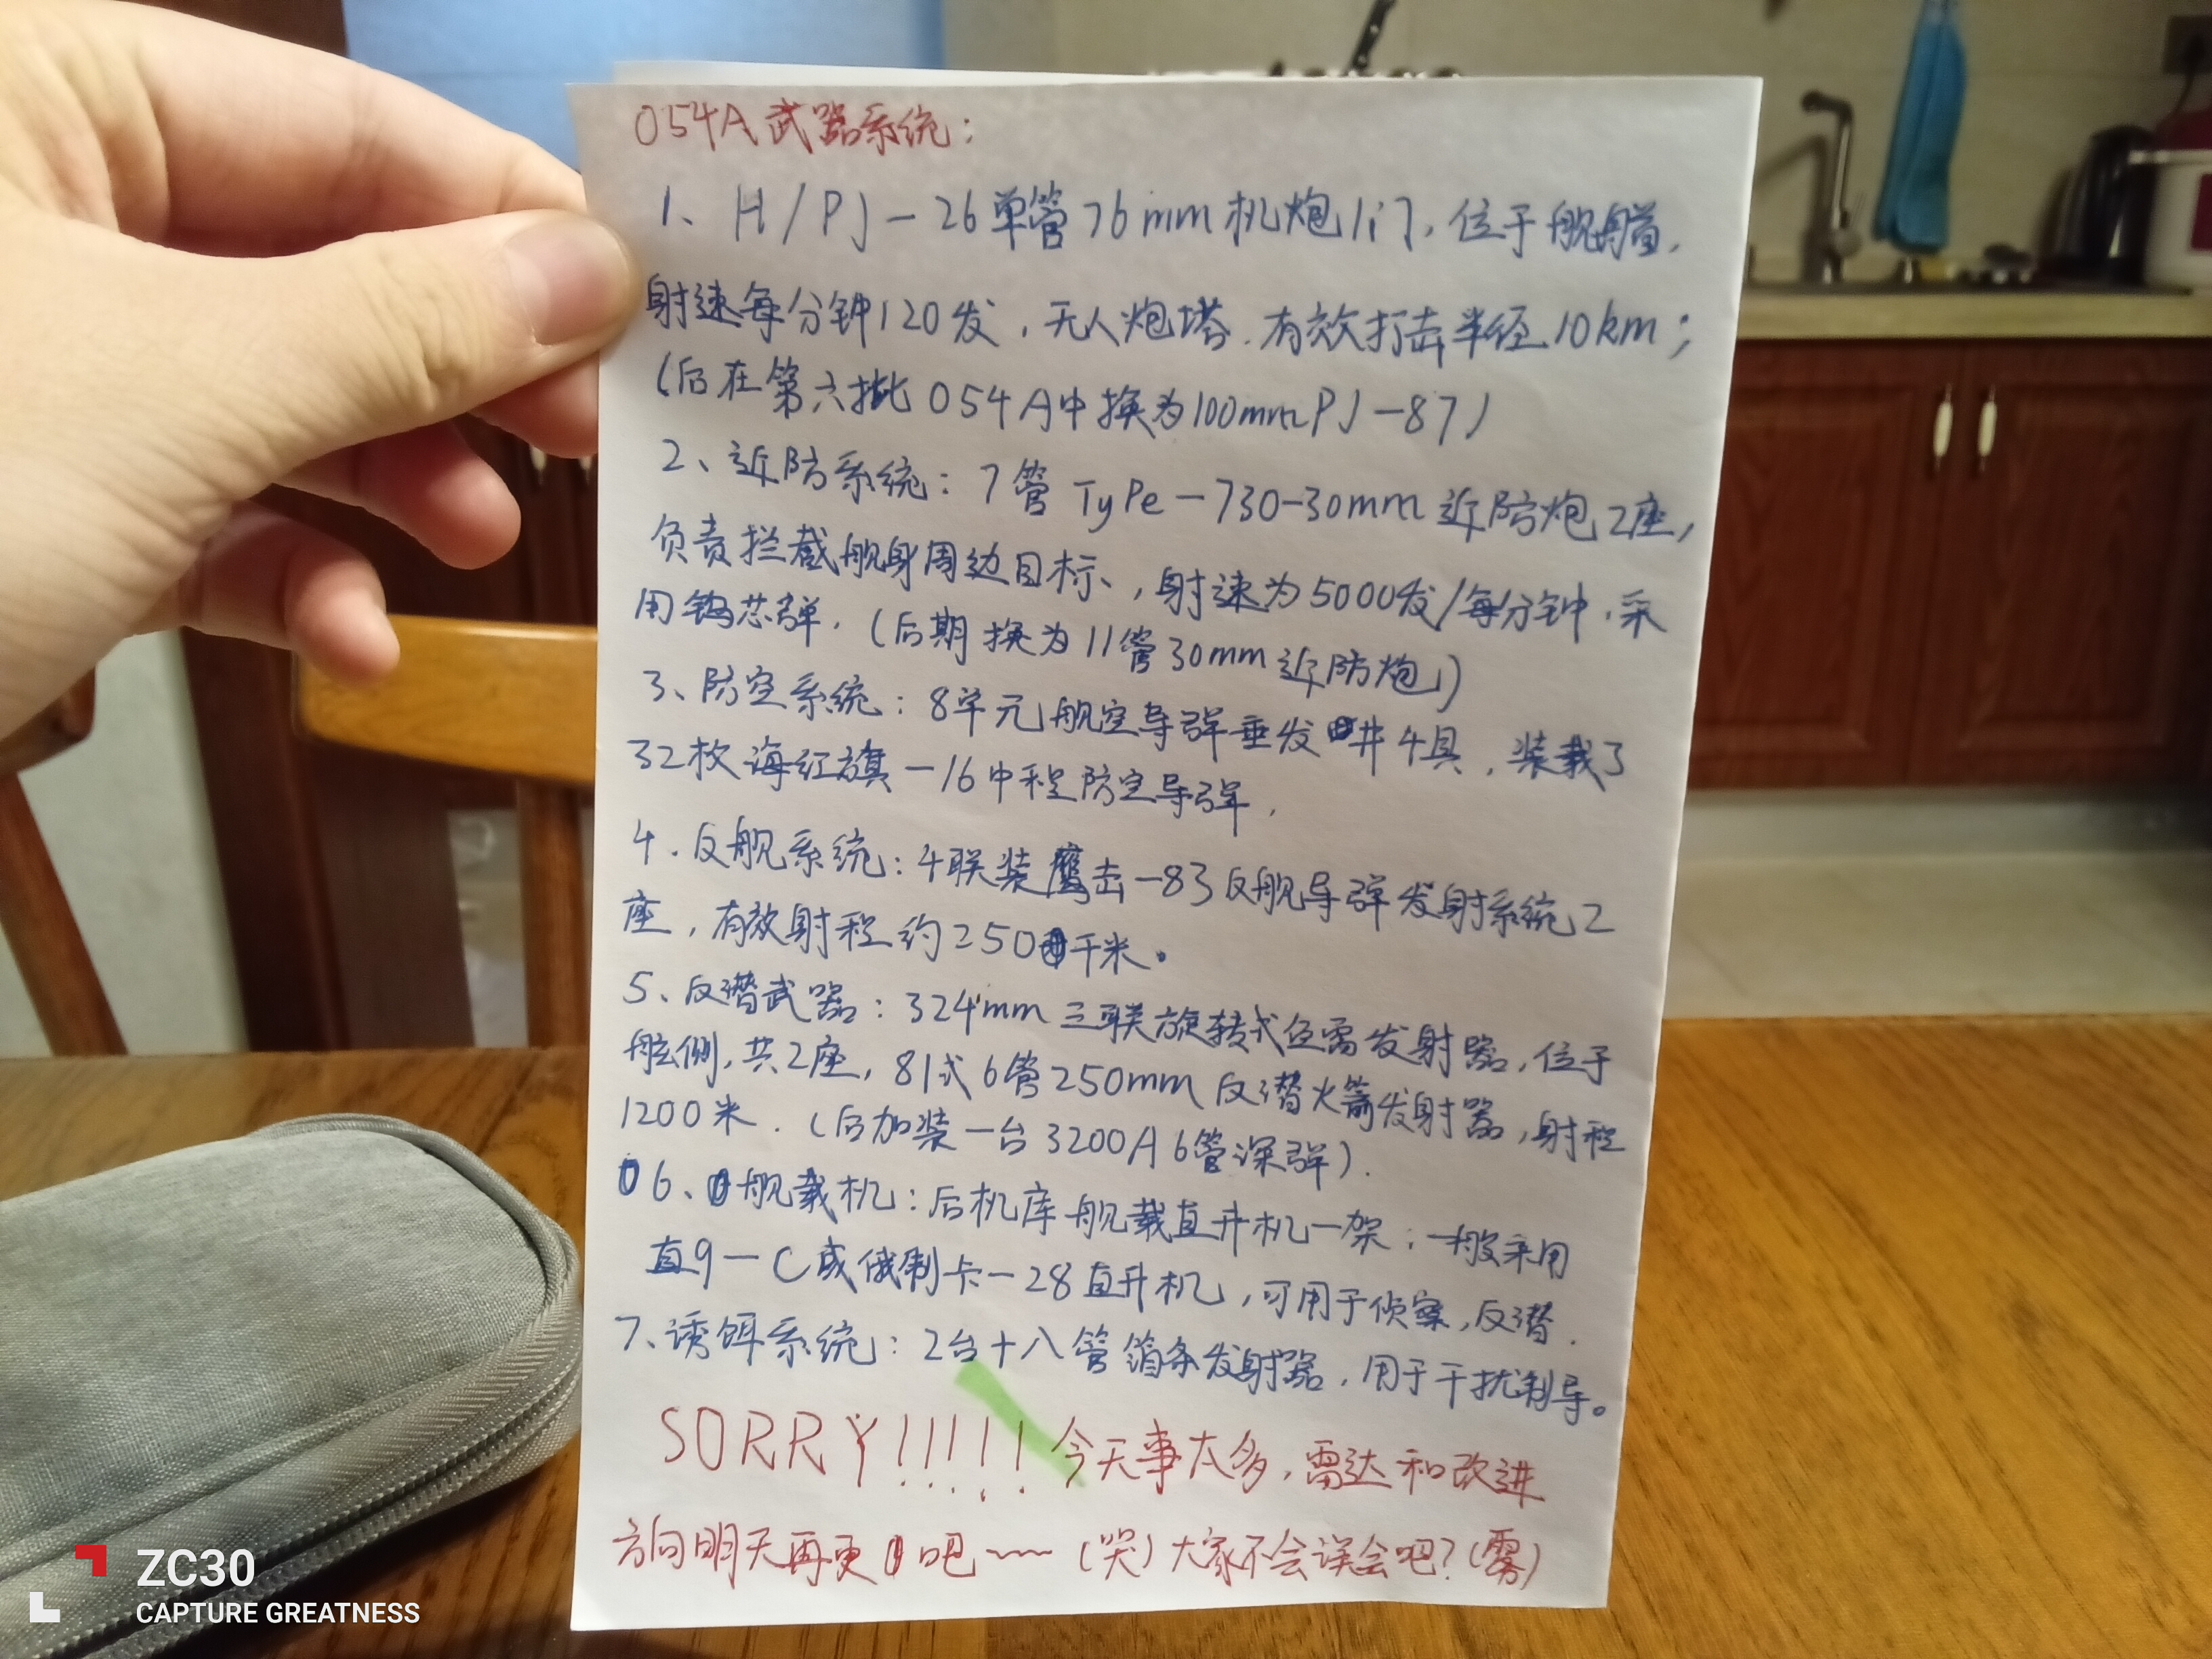 054A武器系统：
1、H/PJ-26单管76mm机炮1门，位于舰艏，
射速每分钟120发，无人炮塔，有效打击半径10km；
(后在第六批054A中换为100mmPJ-87)
2、近防系统：7管TyPe-730-30mm近防炮2座，
负责拦截舰身周边目标、，射速为5000发/每分钟，采
用钨芯弹，(后期换为11管30mm近防炮)
3、防空系统：8单元舰空导弹垂发井4具，装载了
32枚海红旗-16中程防空导弹，
4、反舰系统：4联装鹰击-83反舰导弹发射系统2
座，有效射程约250千米。
5、反潜武器：324mm三联旋转式鱼雷发射器，位于
舷侧，共2座，81式6管250mm反潜火箭发射器，射程
1200米．(后加装一台3200A6管深弹)．
6、舰载机：后机库舰载直升机一架；一般采用
直9-C或俄制卡-28直升机，可用于侦察，反潜．
7、诱饵系统：2台十八管箔条发射器，用于干扰制导。
SORRY!!!!!今天事太多，雷达和改进
方向明天再更吧~~~(哭)大家不会误会吧？(雾)
ZC30
CAPTURE GREATNESS